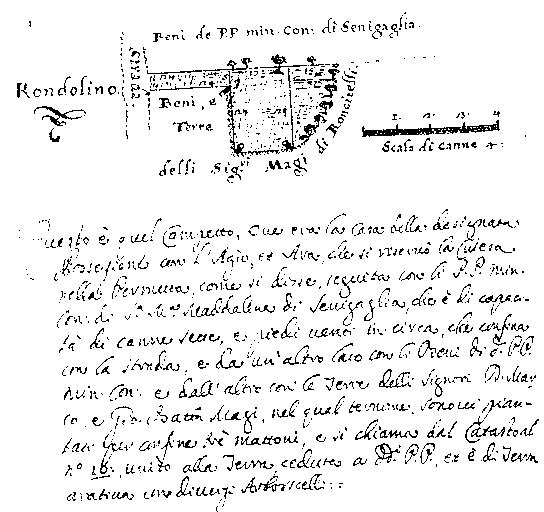 Beni de P.P. min. Con. di Senigaglia.
Strada
Rondolino.
Beni, e
Terra
delli Sig.ri Magi
di Roncitelli
1. 2. 3. 4
Scala di Canne 4.
Questo è quel Campetto, que era la Casa della designata
Possesione con l'Agio, et Ara, che si riservò la Chiesa
nella Permuta, come si disse, seguita con li P.P. min.
Con. di S.ta M.a Maddalena di Senigaglia, che è di capaci-
tà di canne sette, e piedi venti in circa, che confina
con la Strada, e da un'altro lato con li Beni de d. P.P.
Min. Con. e dall'altro con le Terre delli Signori D. Mar-
co, e Gio. Batta Magi, nel qual termine, sonovi pian-
tati per confine trè mattoni, e si chiama dal Catasto al
n.o 18: unito alla Terra ceduta a dd. P.P., et è di Terra
arativa con diversi Arboscelli: